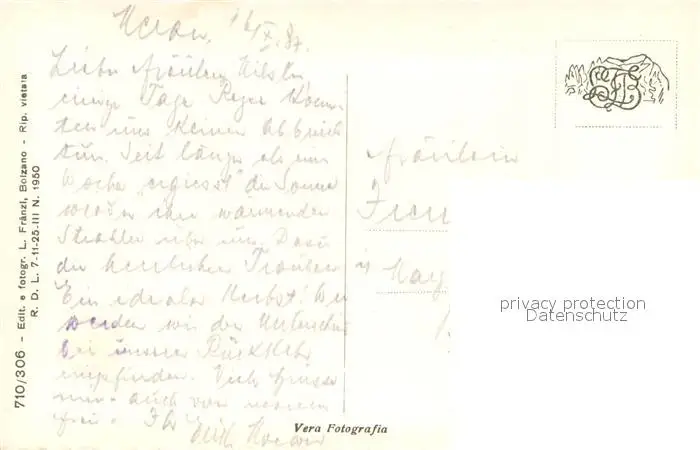 Meran, 16/X. 37.
Liebes Fräulein
einige Tage Regen konn-
ten uns keinen Abbruch
tun. Seit länger als eine
Woche "ergiesst" die Sonne
wieder ihre wärmenden
Strahlen über uns. Dazu
die herrlichen Trauben
Ein idealer Herbst! Wie
werden wir den Unterschied
bei unserer Rückkehr
empfinden. Viele Grüsse
auch von meiner
Frau. Ihr
Fräulein
710/306 - Edit. e fotogr. L. Fränzl, Bolzano - Rip. vietata
R. D. L. 7-11-25-III N. 1950
Vera Fotografia
privacy protection
Datenschutz